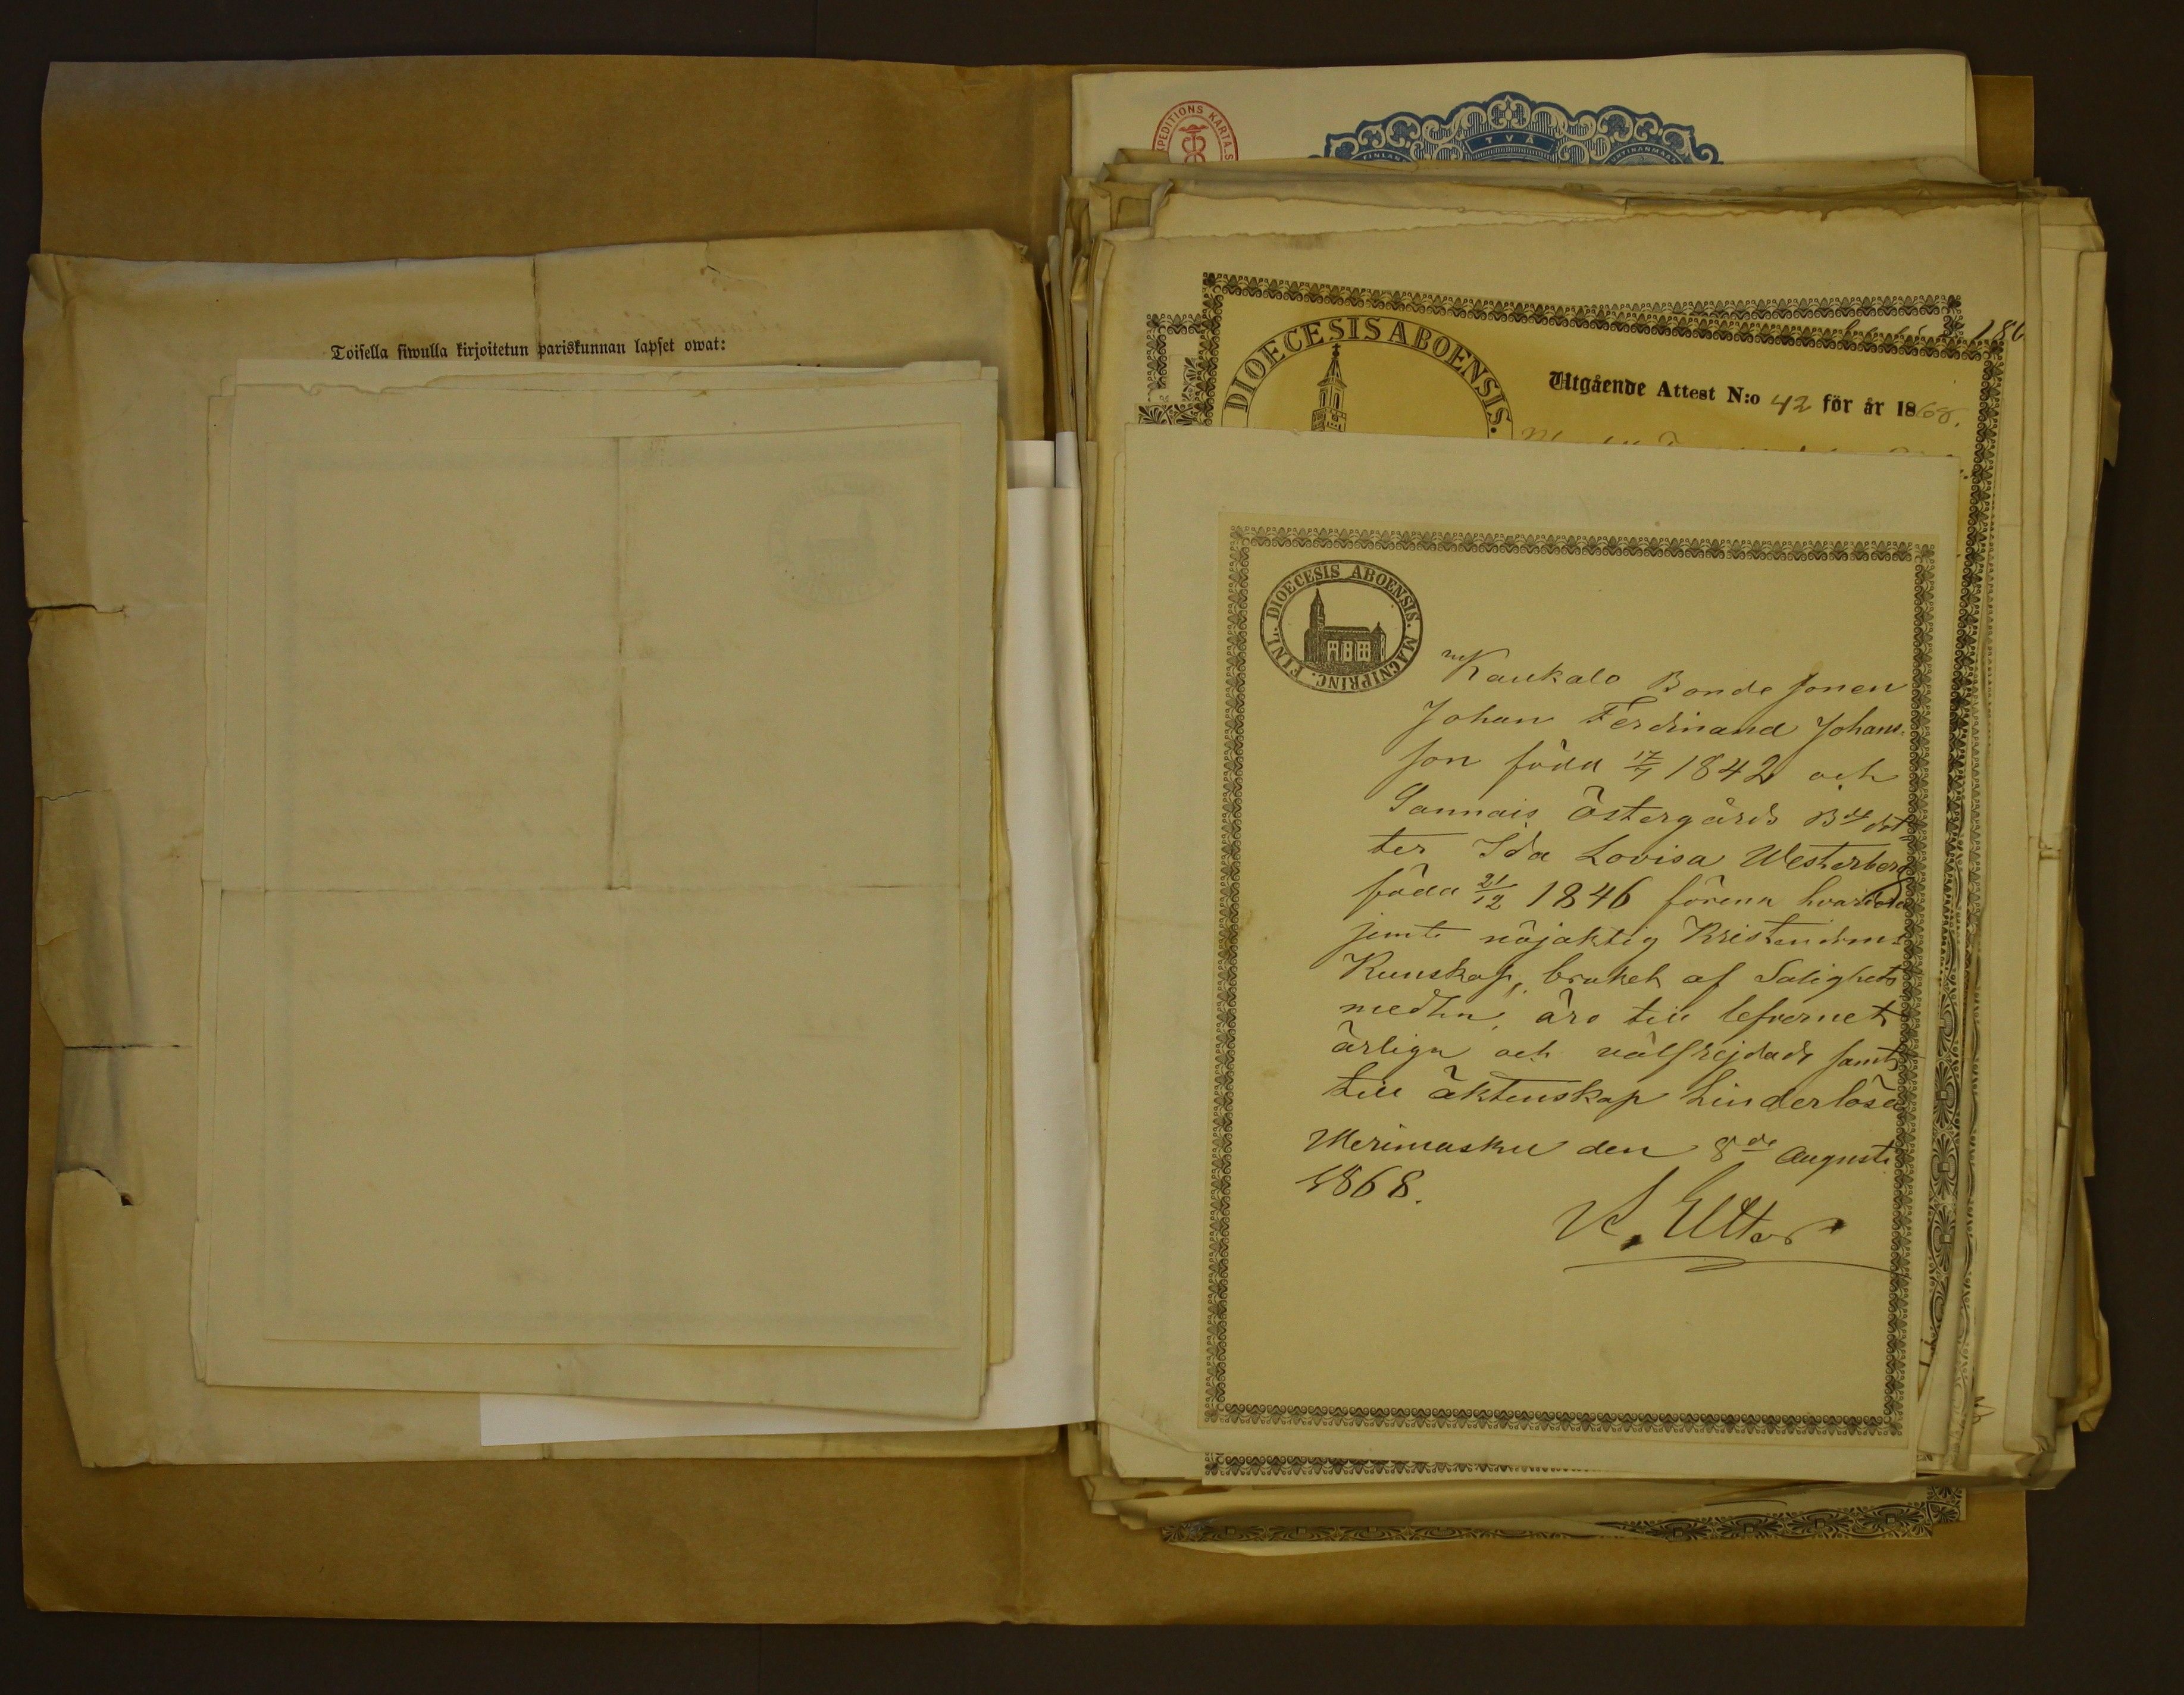 Toisella siwulla kirjoitetun pariskunnan lapset owat:
PEDITIONS KARTA. S
TVÅ
FINLAN
186
DIOECESIS ABOENSIS.
Utgående Attest N:o 42 för år 1868.
DIOECESIS ABOENSIS. MAGNIPRINC. FINL.
Kaukalo Bonde sonen
Johan Ferdinand Johans-
son född 17/7 1842 och
Sannais Östergårds Bds dot-
ter Ida Lovisa Westerberg
född 21/12 1846 förena hvardera
jemte nöjaktig Kristendoms-
Kunskap, bruket af Salighets
medlen, äro till lefvernet
ärliga och välfrejdade samt
till äktenskap hinderlösa
Merimasku den 8de Augusti
1868.